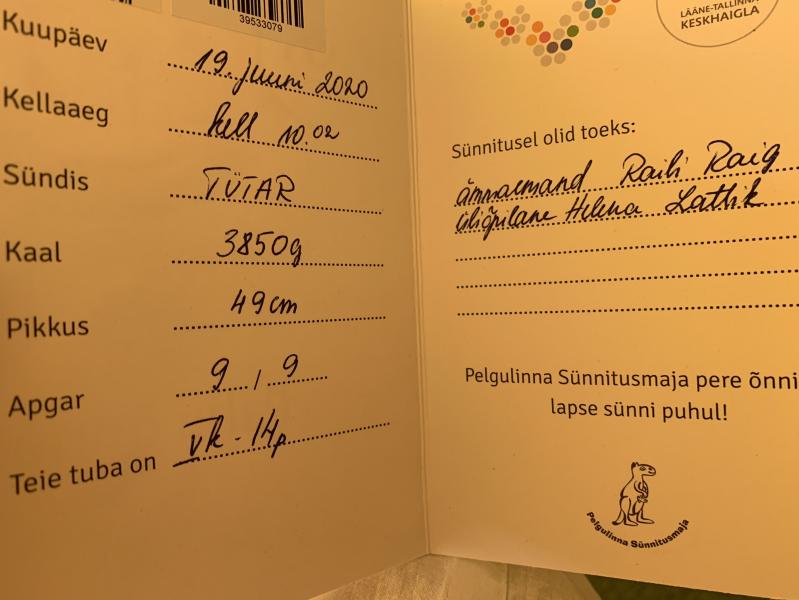 39533079
Kuupäev 19. juuni 2020
Kellaaeg kell 10.02
Sündis TÜTAR
Kaal 3850g
Pikkus 49cm
Apgar 9 / 9
Teie tuba on Vk - 14p
LÄÄNE-TALLINNA
KESKHAIGLA
Sünnitusel olid toeks:
ämmaemand Raili Raig
üliõpilane Helena Lattik
Pelgulinna Sünnitusmaja pere õnni
lapse sünni puhul!
Pelgulinna Sünnitusmaja